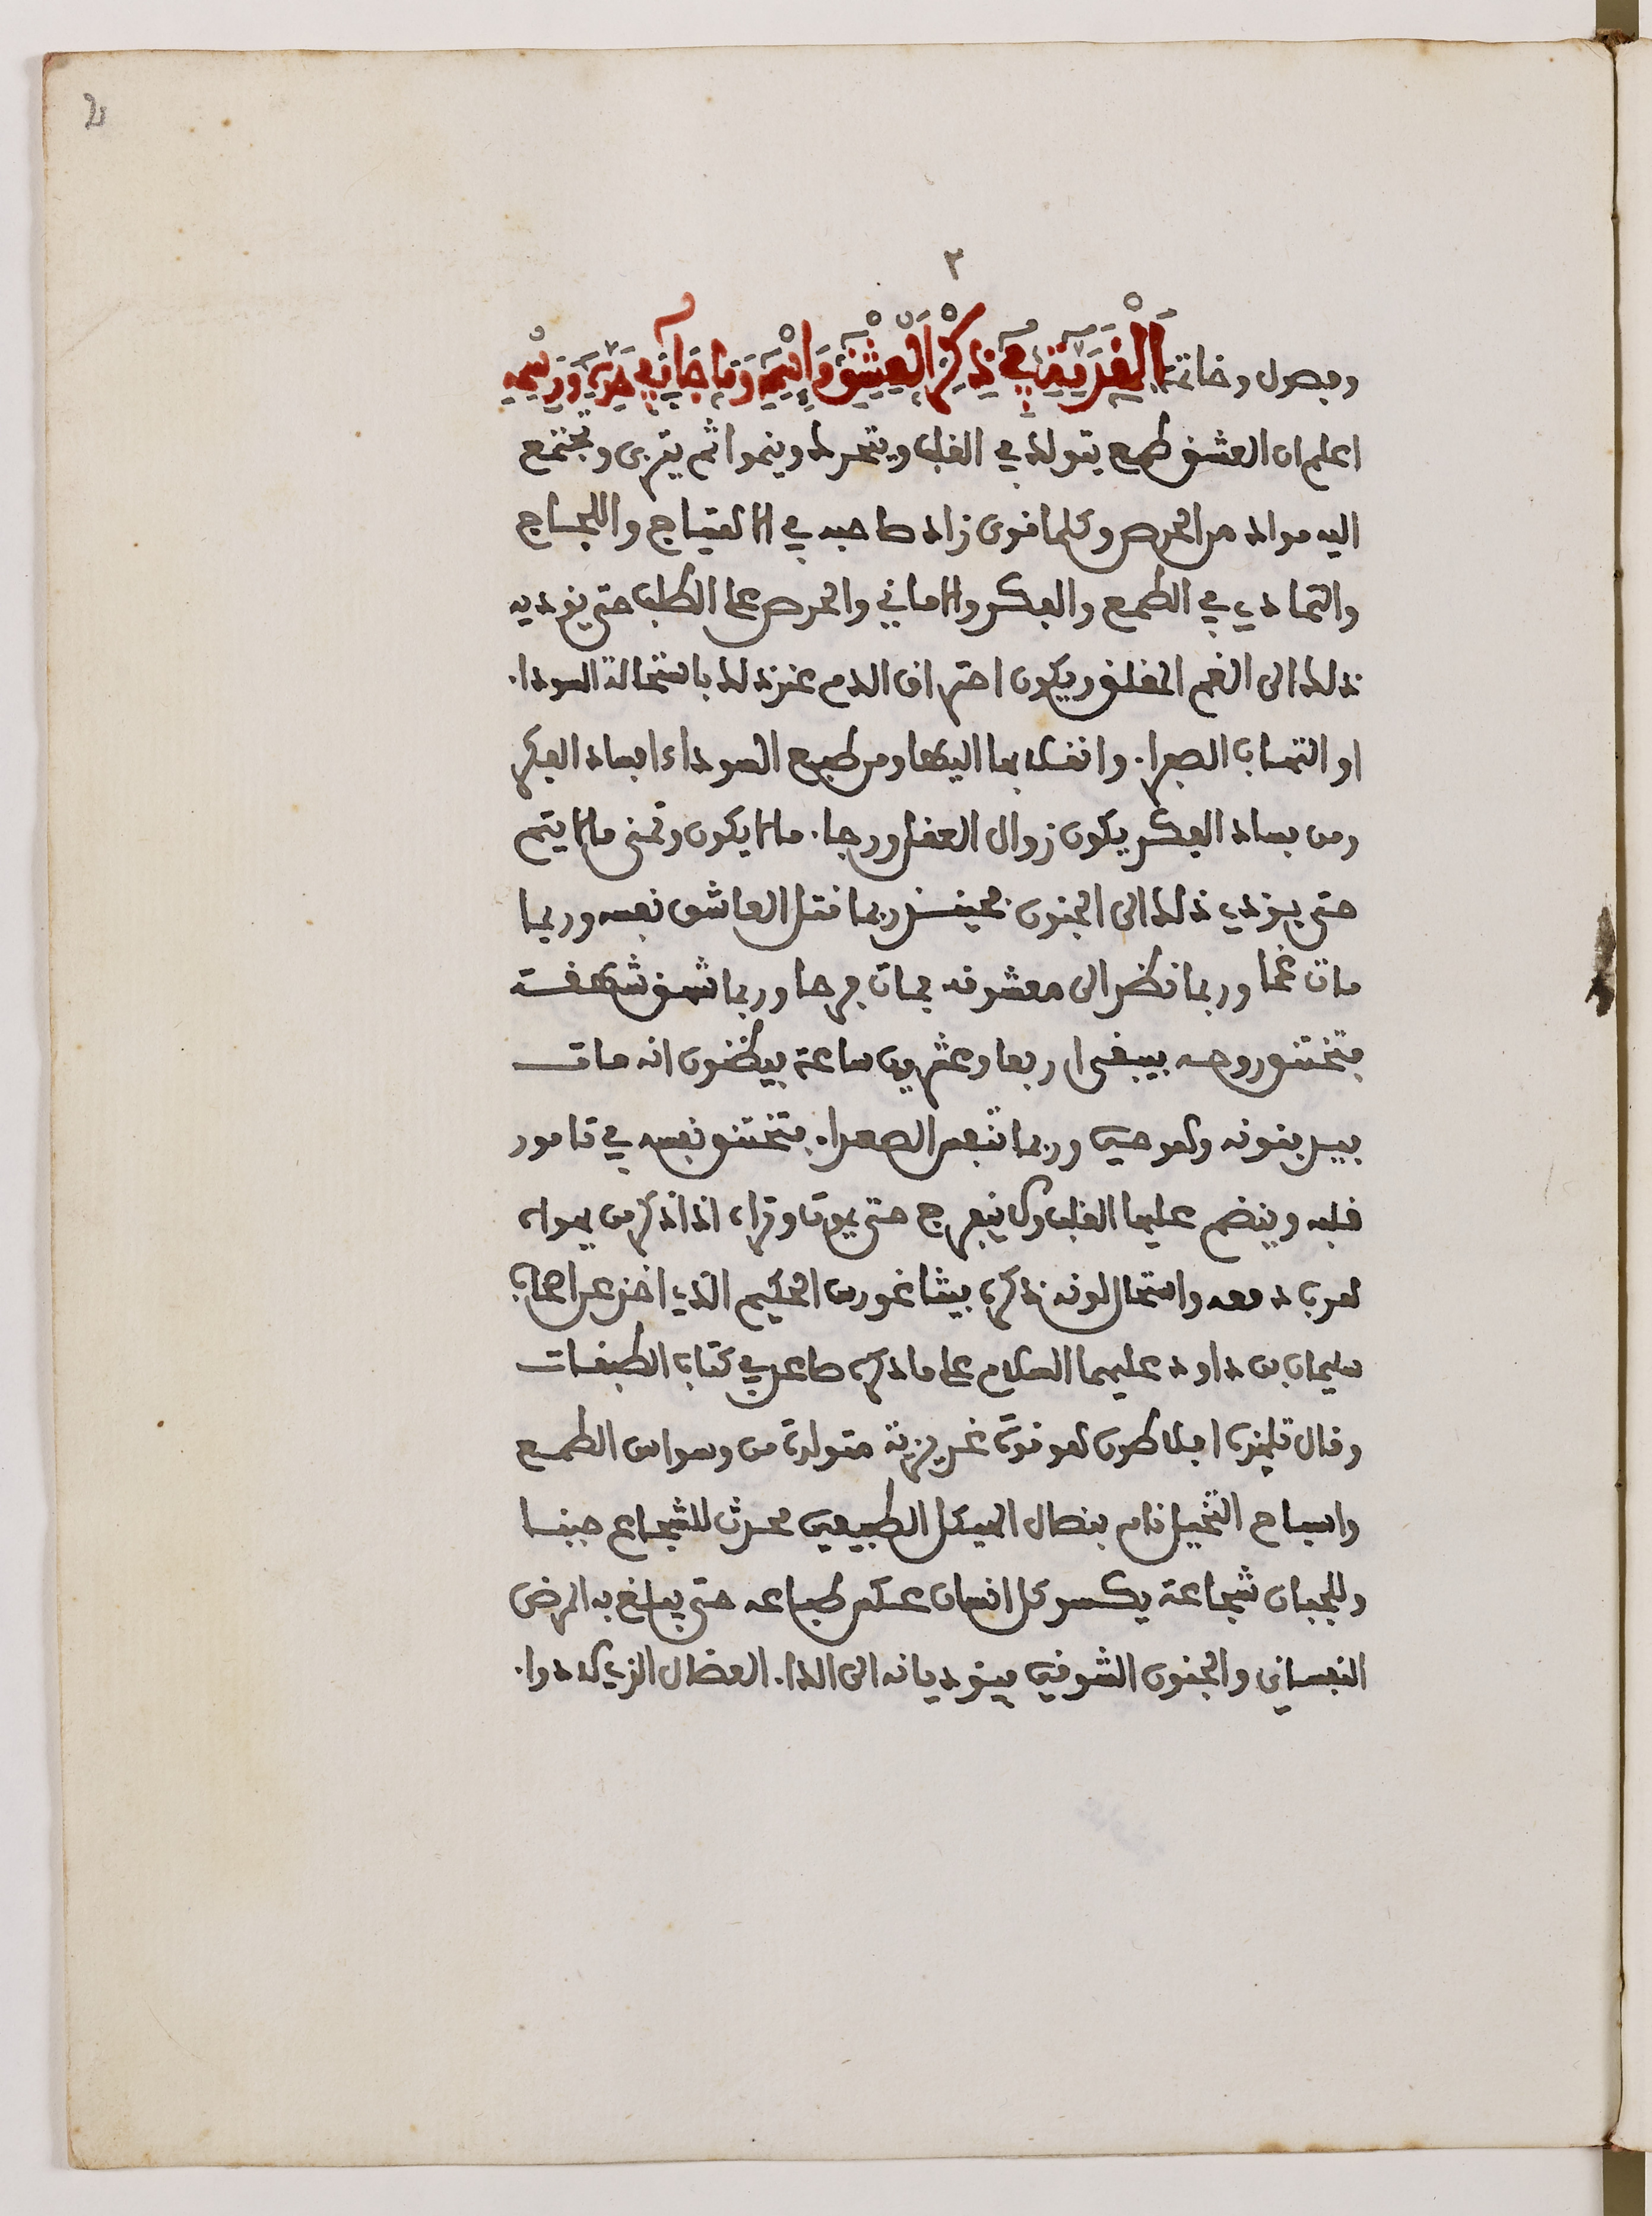 2
٣
وفصول وخاتمة اَلْمُقَدِّمَةُ فِي ذِكْرِ اَلْعِشْقِ وَاسْمِهِ وَمَا جَاءَ فِي حَدِّهِ وَرَسْمِهِ
اعلم ان العشق طمع يتولد في القلب ويتحرك وينموا ثم يتربى ويجتمع
اليه مواد من الحرص وكلما قوى زاد صاحبه في الاهتياج واللجاج
والتمادي في الطمع والفكر والاماني والحرص على الطلب حتى يؤديه
ذلك الى الغم المقلق ويكون احتراق الدم عند ذلك باستحالة السودا.
او التهاب الصفرا. وانقلابها اليها ومن طبع السوداء افساد الفكر
ومن فساد الفكر يكون زوال العقل ورجا. مالا يكون وتمنى مالا يتم
حتى يؤدي ذلك الى الجنون فحينئذ ربما قتل العاشق نفسه وربما
مات غما وربما نظر الى معشوقه فمات فرحا وربما شهق شهقة
فتختنق روحه فيبقى اربعا وعشرين ساعة فيظنون انه مات
فيدفنونه وهو حي وربما تنفس الصعدا. فتختنق نفسه في تامور
قلبه وينضم عليها القلب ولا ينفرج حتى يموت وتراه اذا ذكر من يهواه
هرب دمعه واستحال لونه ذكره فيثاغورس الحكيم الذي اخذ عن اصحاب
سليمان بن داود عليهما السلام على ما ذكره صاعد في كتاب الطبقات
وقال تلميذه افلاطون هو قوة غريزية متولدة من وسواس الطمع
واشباح التخيل نام بنصال الهيكل الطبيعي محدث للشجاع جبنا
وللجبان شجاعة يكسو كل انسان عكس طباعه حتى يبلغ به المرض
النفساني والجنون الشوقي فيؤديانه الى الدا. العضال الذي لا دوا.